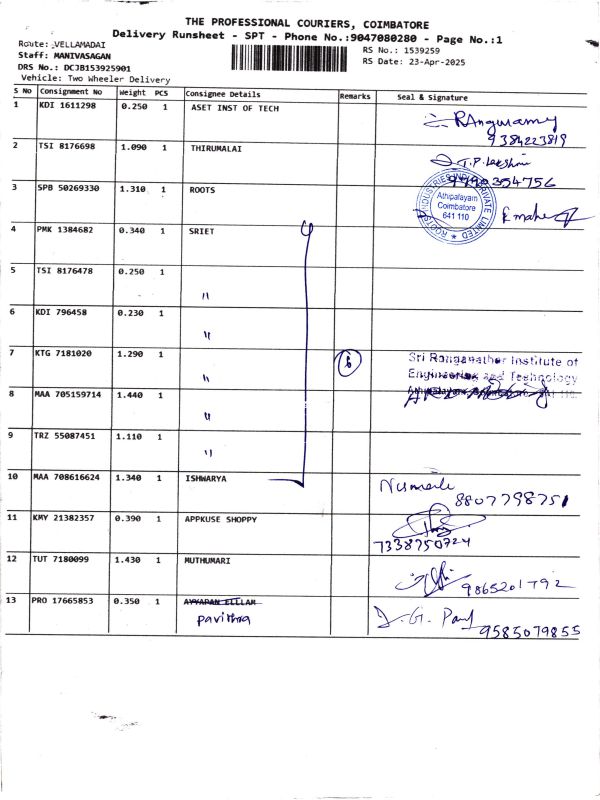 THE PROFESSIONAL COURIERS, COIMBATORE
Delivery Runsheet - SPT - Phone No.:9047080280 - Page No.:1
Route: VELLAMADAI
Staff: MANIVASAGAN
DRS No.: DCJB153925901
Vehicle: Two Wheeler Delivery
RS No.: 1539259
RS Date: 23-Apr-2025
S No Consignment No Weight PCS Consignee Details Remarks Seal & Signature
1 KDI 1611298 0.250 1 ASET INST OF TECH
9384223819
2 TSI 8176698 1.090 1 THIRUMALAI T.P. Lakshmi
9790354756
3 SPB 50269330 1.310 1 ROOTS
ROOTS INDUSTRIES INDIA PRIVATE LIMITED
Athipalayam
Coimbatore
641 110
4 PMK 1384682 0.340 1 SRIET
5 TSI 8176478 0.250 1 "
6 KDI 796458 0.230 1 "
7 KTG 7181020 1.290 1 " 6
Sri Ranganathar Institute of
Engineering and Technology
8 MAA 705159714 1.440 1 "
9 TRZ 55087451 1.110 1 "
10 MAA 708616624 1.340 1 ISHWARYA
8807798751
11 KMY 21382357 0.390 1 APPKUSE SHOPPY
7338750724
12 TUT 7180099 1.430 1 MUTHUMARI
9865201792
13 PRO 17665853 0.350 1 AYYAPAN ELLLAM
pavithra
9585079855